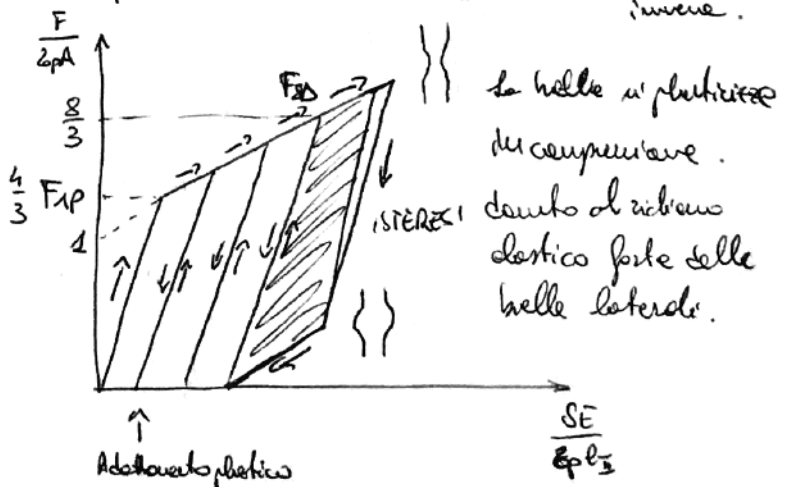 inversa.
F
2ρA
8
3
4
3
F1P
1
F2Δ
ISTERESI
La biella si plasticizza
in compressione.
dovuto al richiamo
elastico forte delle
bielle laterali.
SE
Adattamento plastico